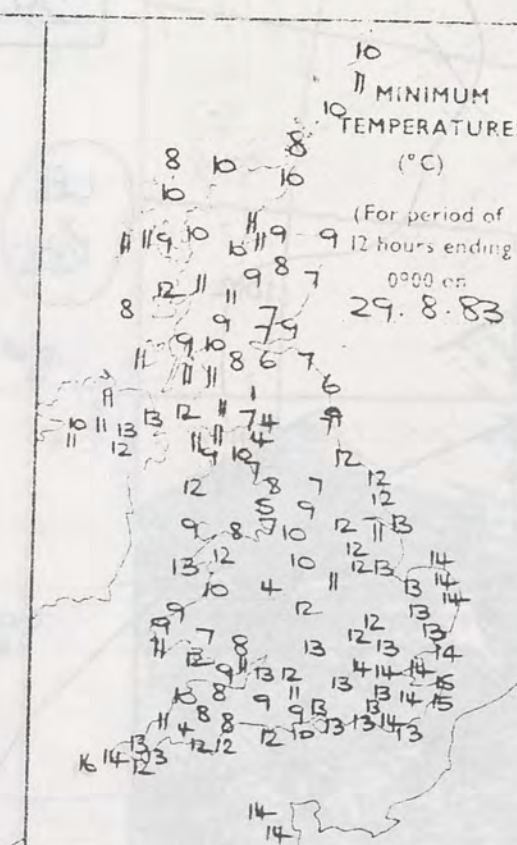 10
11 MINIMUM
10 TEMPERATURE
8 10 8 (°C)
10 10
11 (For period of
11 11 9 10 10 11 9 9 12 hours ending
9 8 7 0900 on
12 11 11
8 9 7 9 29.8.83
7
11 9 10 8 6 7
11 11 6
11 1
10 11 13 13 12 11 7 4
11 12 11 11 4 12
9 10 7
12 8 7 12
5 9 12
9 8 7 10 12 11 13
13 12 10 12
10 4 11 12 13 14
12 13 14
9 14
9 7 12 13
11 13 8 13 12 13 13 14
12 9 11 13 12 14 14 14
10 8 9 11 13 13 14 15
11 8 9 13 13 15
13 4 8 12 10 13 13 14 13
16 14 13 12 12
12
14
14